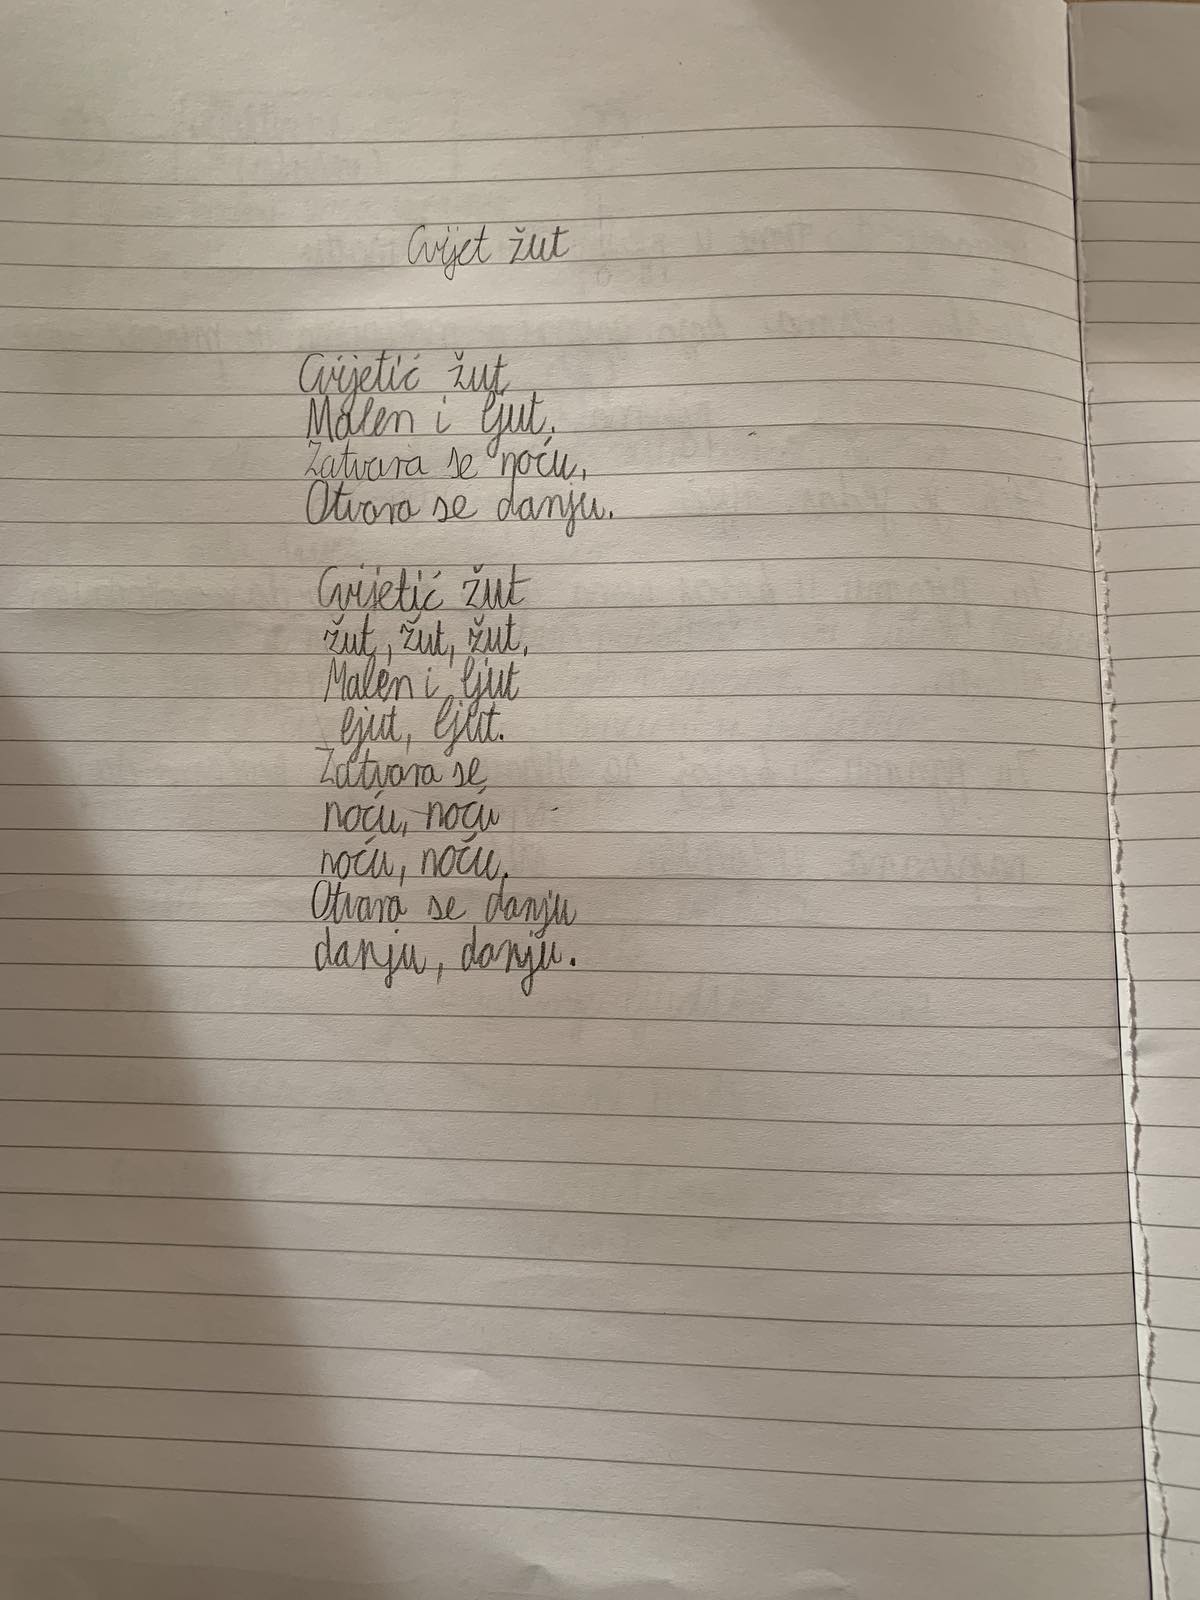 Cvijet žut
Cvijetić žut
Malen i ljut.
Zatvara se noću,
Otvara se danju.
Cvijetić žut
žut, žut, žut,
Malen i ljut
ljut, ljut.
Zatvara se
noću, noću
noću, noću.
Otvara se danju
danju, danju.